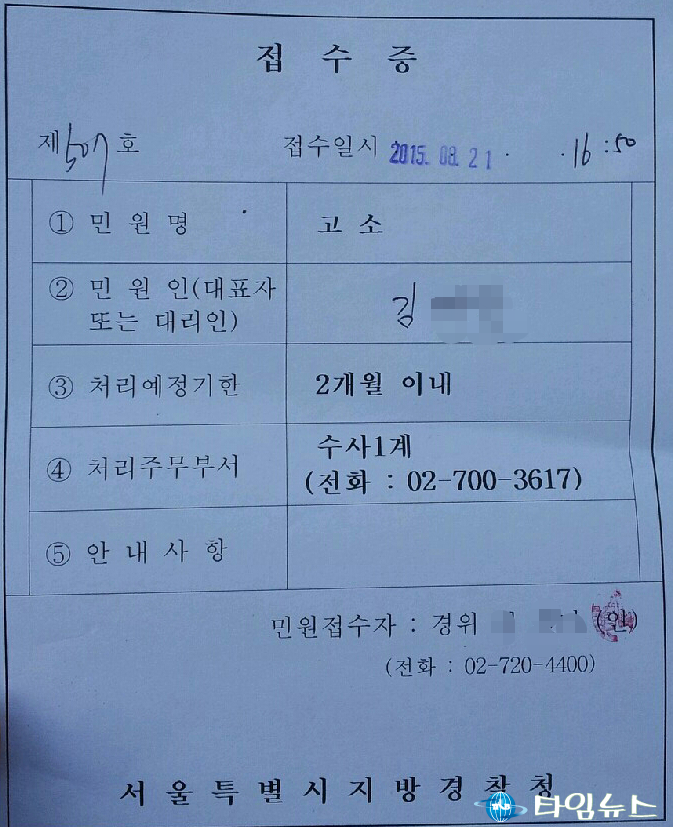 접 수 증
제 507 호 접수일시 2015. 08. 21 . . 16 : 50
① 민 원 명 고 소
② 민 원 인(대표사 또는 대리인) 김
③ 처리예정기한 2개월 이내
④ 처리주무부서 수사1계
(전화 : 02-700-3617)
⑤ 안 내 사 항
민원접수자 : 경위 (인)
(전화 : 02-720-4400)
서 울 특 별 시 지 방 경 찰 청
타임뉴스